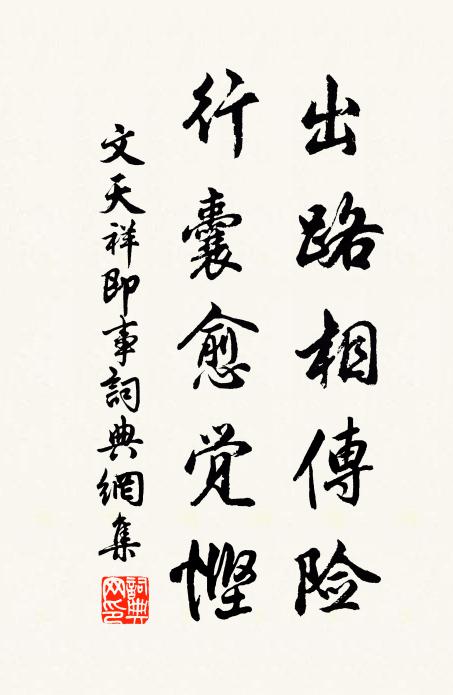 出路相傳险
行囊愈觉慳
文天祥即事詞典網集
詞典网印